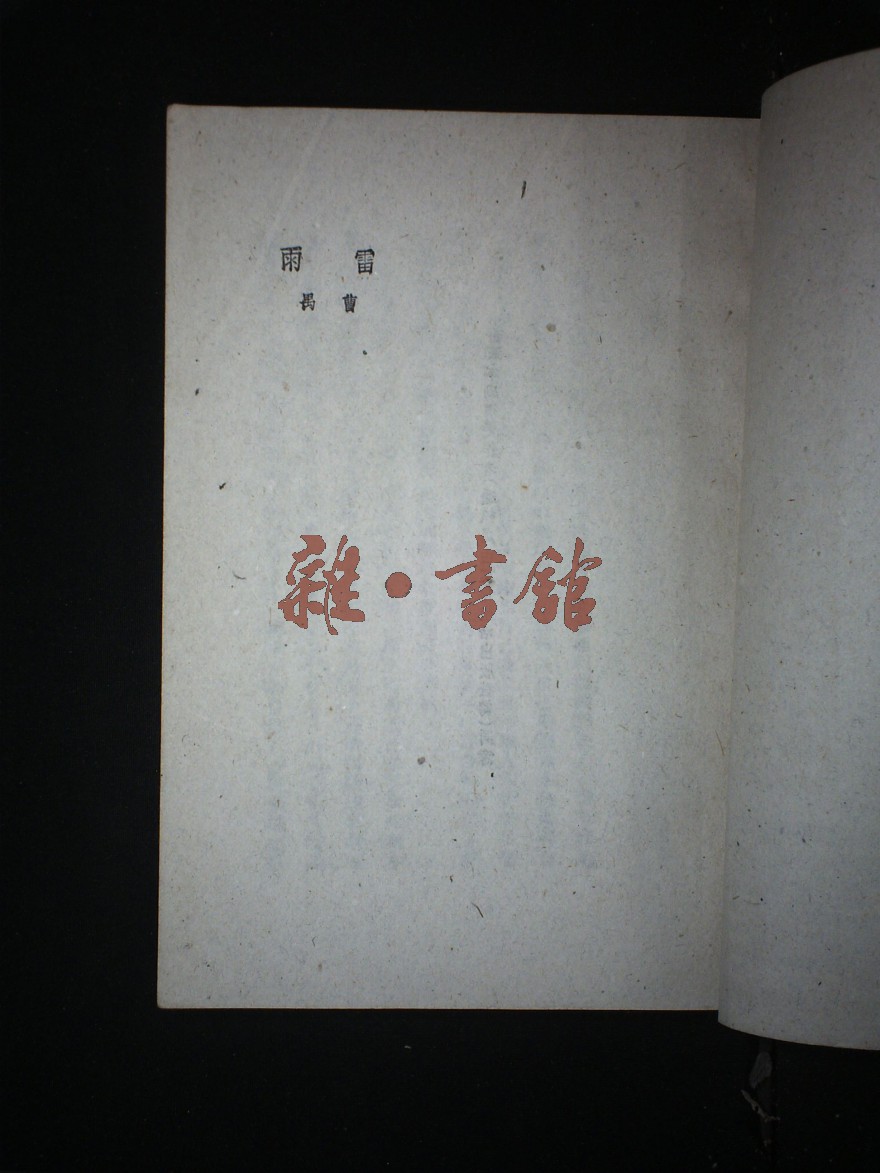 雷雨
曹禺
雜·書館